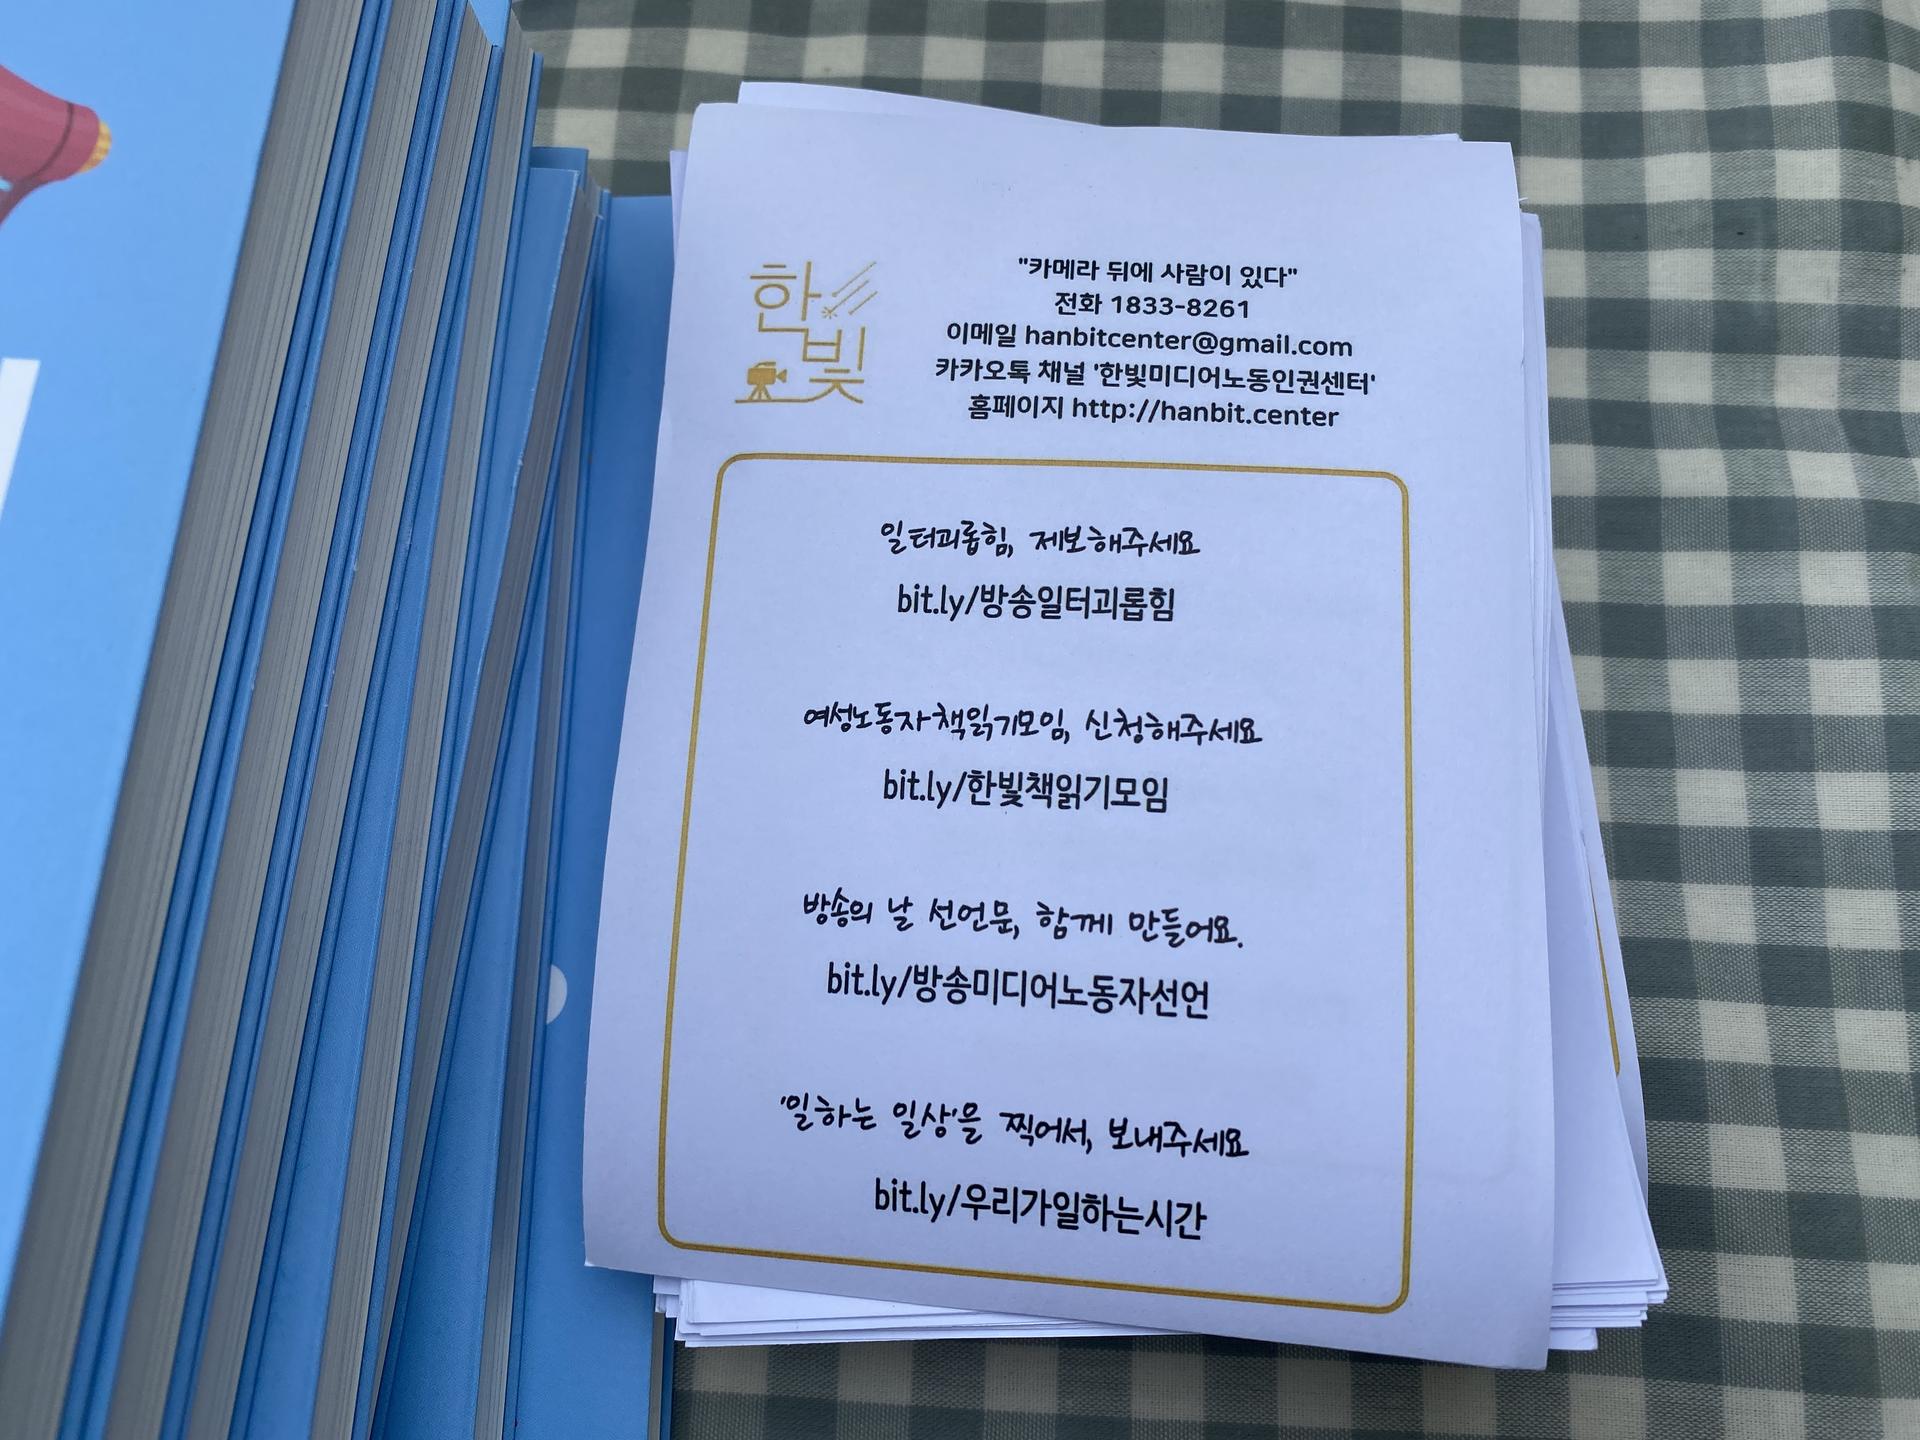 한빛
"카메라 뒤에 사람이 있다"
전화 1833-8261
이메일 hanbitcenter@gmail.com
카카오톡 채널 '한빛미디어노동인권센터'
홈페이지 http://hanbit.center
일터괴롭힘, 제보해주세요
bit.ly/방송일터괴롭힘
여성노동자 책읽기모임, 신청해주세요
bit.ly/한빛책읽기모임
방송의 날 선언문, 함께 만들어요.
bit.ly/방송미디어노동자선언
'일하는 일상'을 찍어서, 보내주세요
bit.ly/우리가일하는시간